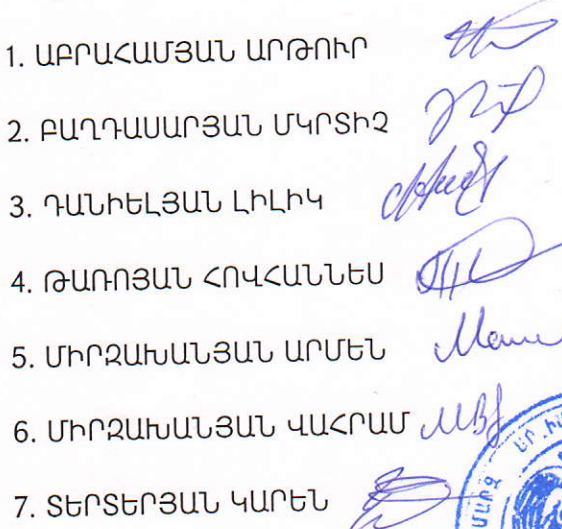 1. ԱԲՐԱՀԱՄՅԱՆ ԱՐԹՈՒՐ
2. ԲԱՂԴԱՍԱՐՅԱՆ ՄԿՐՏԻՉ
3. ԴԱՆԻԵԼՅԱՆ ԼԻԼԻԿ
4. ԹԱՌՈՅԱՆ ՀՈՎՀԱՆՆԵՍ
5. ՄԻՐԶԱԽԱՆՅԱՆ ԱՐՄԵՆ
6. ՄԻՐԶԱԽԱՆՅԱՆ ՎԱՀՐԱՄ
7. ՏԵՐՏԵՐՅԱՆ ԿԱՐԵՆ